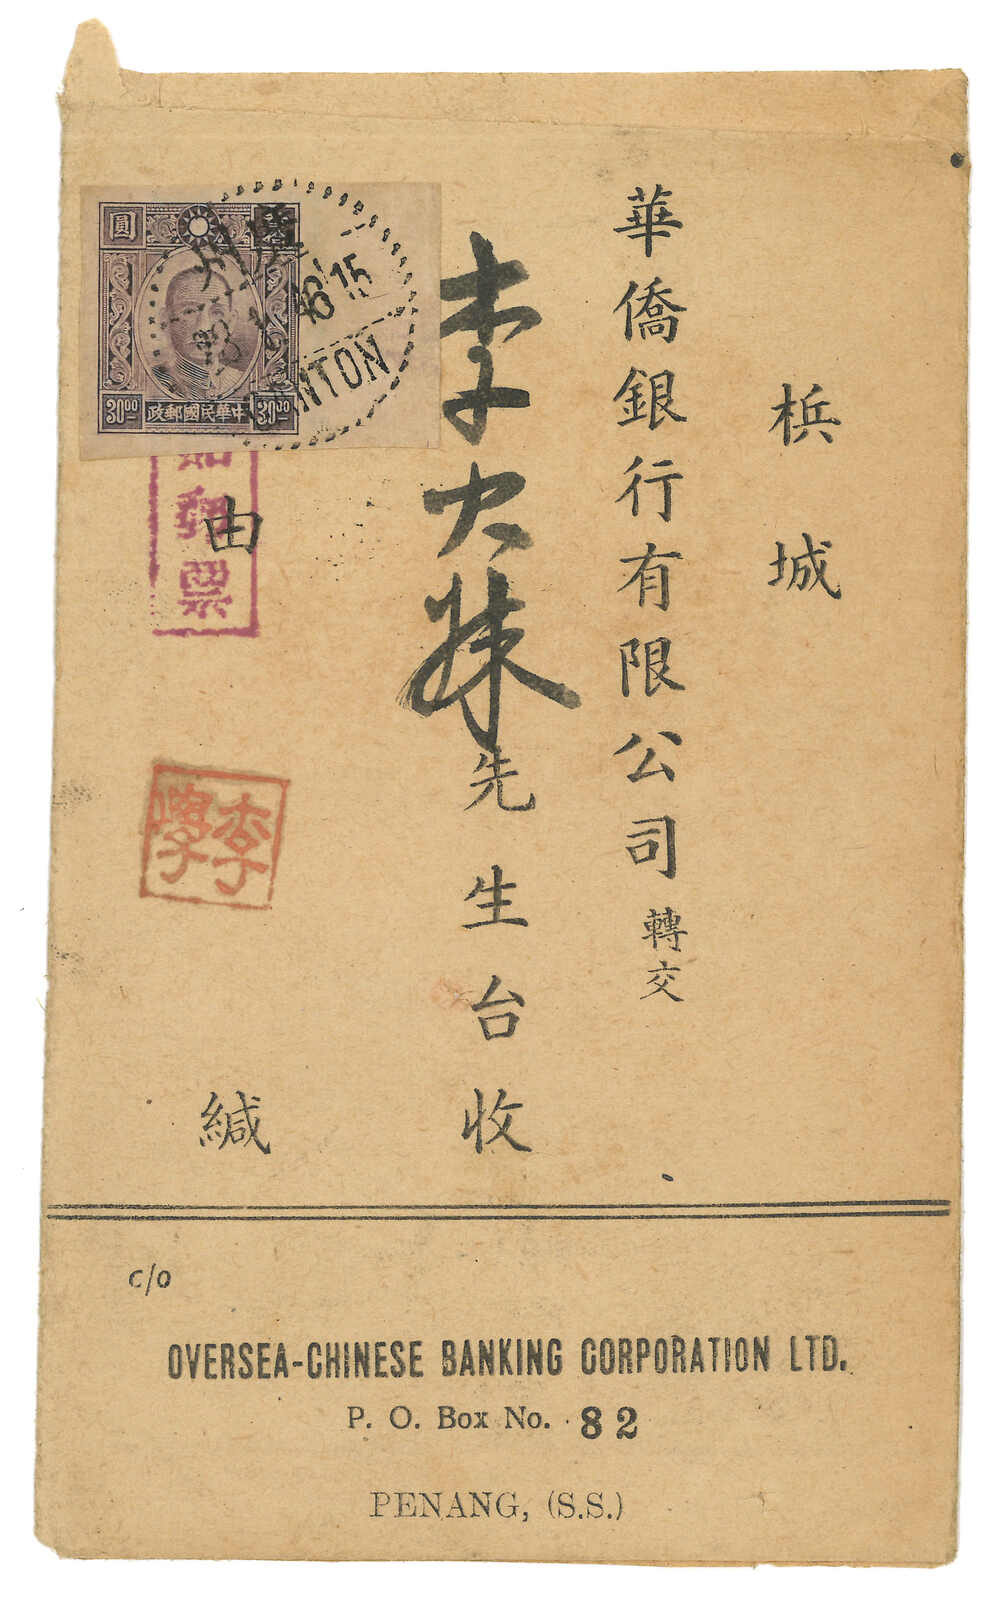 梹城
華僑銀行有限公司轉交
李大
先生台收
由
緘
郵票
李學
圓
30⁰⁰
中華民國郵政
30⁰⁰
州
15
NTON
c/o
OVERSEA-CHINESE BANKING CORPORATION LTD.
P. O. Box No. 82
PENANG, (S.S.)